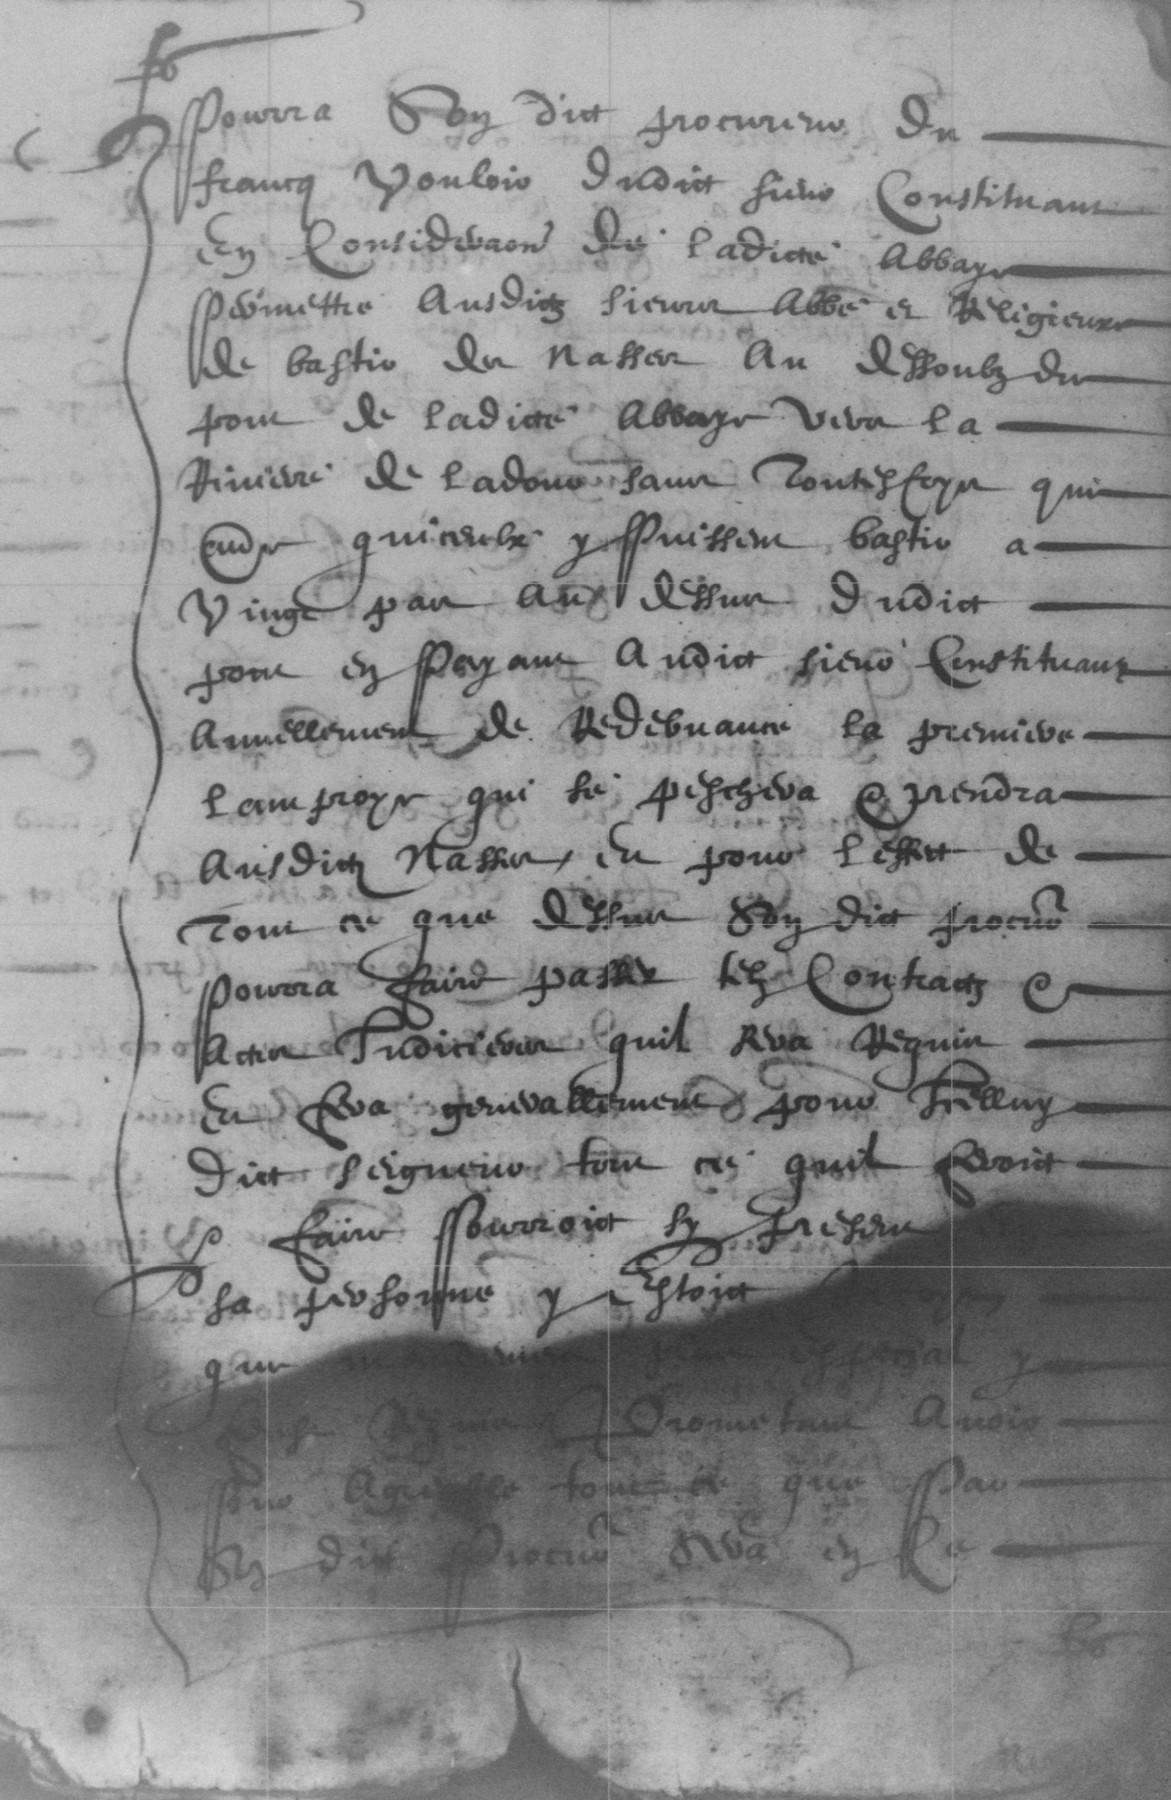 Pourra Son dict procureur du
francq vouloir dudict sieur Constituant
En Consideraon de ladicte Abbaye
Permettre Ausdictz sieurs Abbé et Religieux
de bastir des Nasses Au dessoubz du
pont de ladicte Abbaye vers la
Riviere de Ladour sans Toutesfoys qui
quicculx y Puissent bastir a
vingt pas Au dessus dudict
pont en Payant Audict sieur Constituant
Annuellement de Redebvance la premiere
Lamproye qui se peschera & prendra
Ausdictz Nasses, et pour l effect de
Tout ce que dessus Son dict procur
Pourra faire passer telz Contractz &
Actes Judicieres quil sera Requis
Et fera generallement pour Icelluy
dict seigneur tout ce quil feroict
& faire Pourroict sy present
sa personne y Estoict
que mandement plus especial y
Requis Promettant Avoir
Pour Agreable tout ce que Par
Son dict Procur sera en Ce